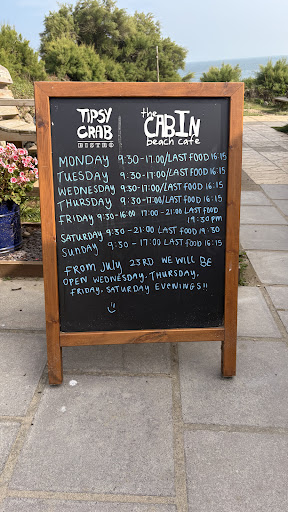 TIPSY CRAB BISTRO
the CABIN beach cafe
MONDAY 9:30-17:00/LAST FOOD 16:15
TUESDAY 9:30-17:00/LAST FOOD 16:15
WEDNESDAY 9:30-17:00/LAST FOOD 16:15
THURSDAY 9:30-17:00/LAST FOOD 16:15
FRIDAY 9:30-16:00 17:00-21:00 LAST FOOD
19:30PM
SATURDAY 9:30-21:00 LAST FOOD 19:30
SUNDAY 9:30-17:00 LAST FOOD 16:15
FROM JULY 23RD WE WILL BE
OPEN WEDNESDAY, THURSDAY,
FRIDAY, SATURDAY EVENINGS!!